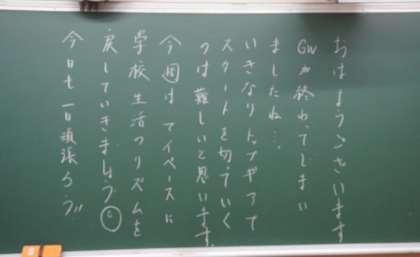 おはようございます
GWが終わってしまい
ましたね…
いきなりトップギアで
スタートを切っていく
のは難しいと思います。
今週はマイペースに
学校生活のリズムを
戻していきましょう
今日も一日頑張ろう!!